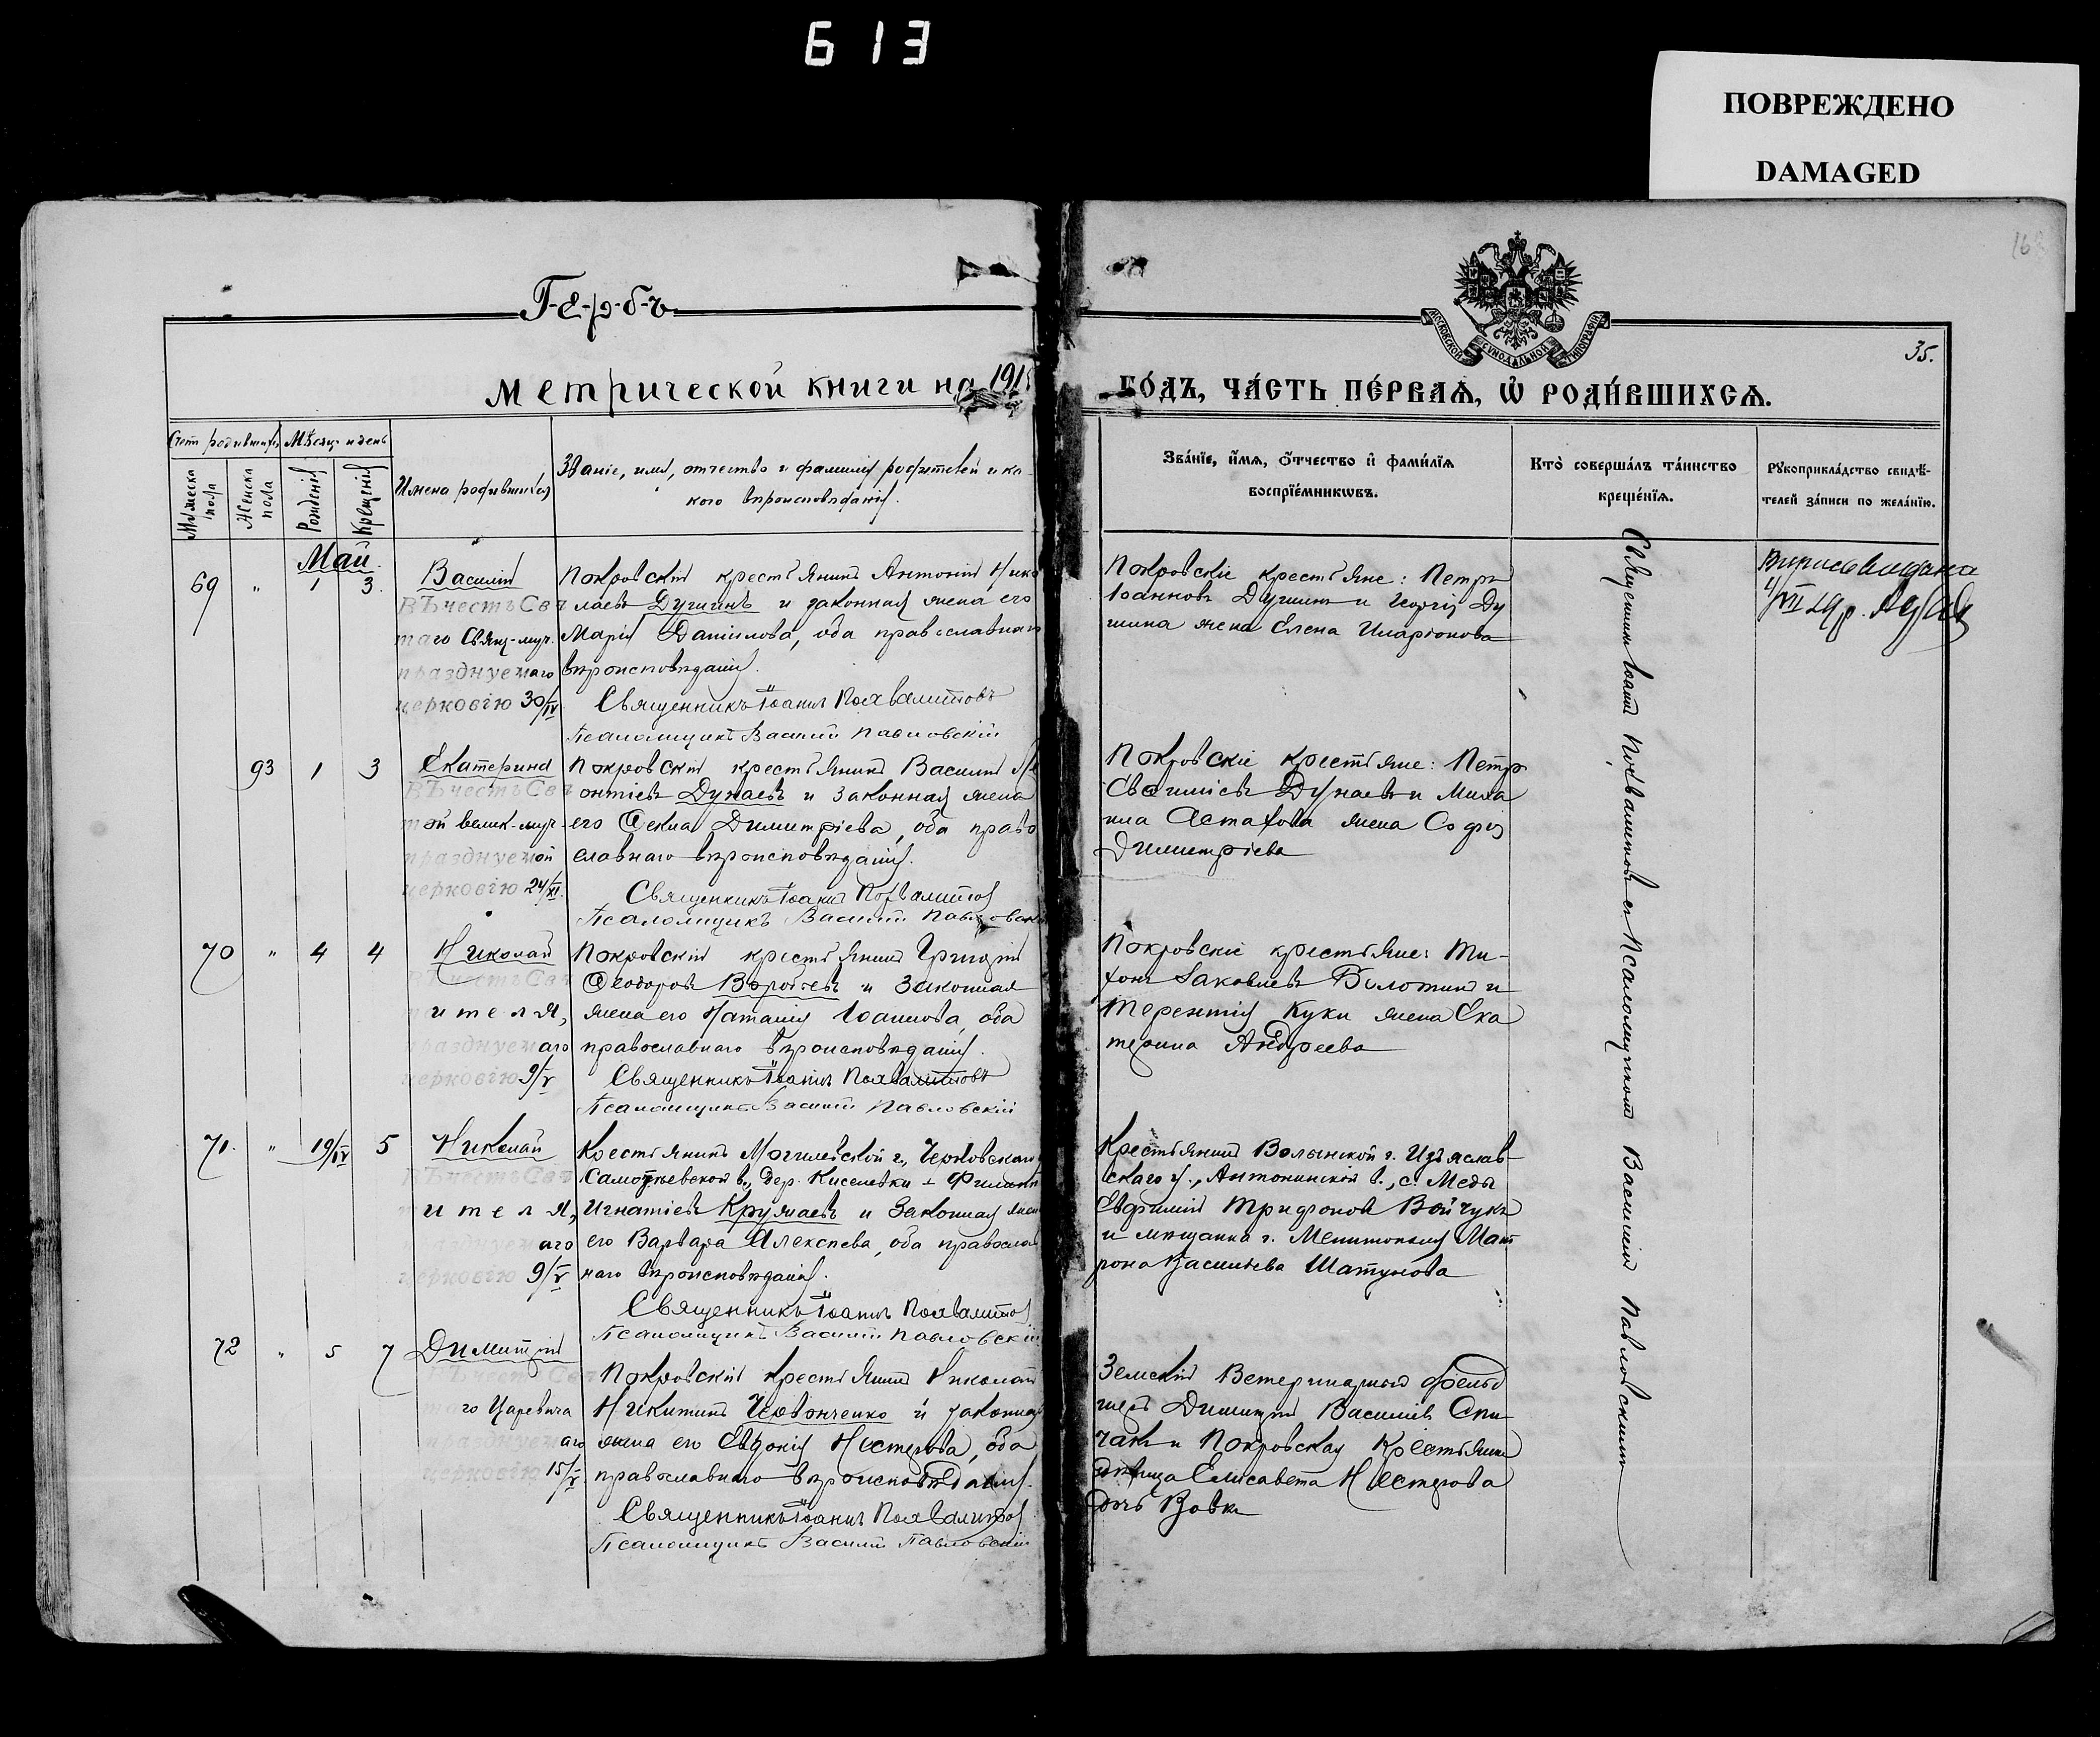 613
ПОВРЕЖДЕНО
DAMAGED
Г-е-р-б-ъ
МОСКОВСКОЙ СУНОДАЛЬНОЙ ТИПОГРАФІИ
35.
метрической книги на 191
го́дъ, ча́сть пе́рваѧ, ѡ҆ роди́вшихсѧ.
Счетъ родившихся
Мѣсяцъ и день
Мужеска пола
Женска пола
Рожденія
Крещенія
Имена родившихся
Званіе, имя, отчество и фамилія родителей и ка-
кого вѣроисповѣданія.
Зва́нїе, и҆́мѧ, ѻ҆́тчество и҆ фами́лїѧ
воспрїе́мникѡвъ.
Кто̀ соверша́лъ та́инство
креще́нїѧ.
Рꙋкоприкла́дство свидѣ́-
телей за́писи по жела́нїю.
Май.
69 " 1 3.
Василій
Въ честь Свя
таго Свящ-муч.
празднуемаго
церковію 30/IV
Покровскій крестьянинъ Антоній Нико
лаевъ Душинъ и законная жена его
Марія Даніилова, оба православнаго
вѣроисповѣданія.
Священникъ Іоаннъ Похвалитовъ
Псаломщикъ Василій Павловскій
Покровскіе крестьяне: Петръ
Іоанновъ Душинъ и Георгія Ду
шина жена Елена Иларіонова
Священникъ Іоаннъ Похвалитовъ съ Псаломщикомъ Василіемъ Павловскимъ
93 1 3
Екатерина
Въ честь Свя
той велик-муч-
празднуемой
церковію 24/XI.
Покровскій крестьянинъ Василій
онтіевъ Дунаевъ и законная жена
его Ѳекла Димитріева, оба право
славнаго вѣроисповѣданія.
Священникъ Іоаннъ Похвалитов
Псаломщикъ Василій Павловскі
Покровскіе крестьяне: Петръ
Дунаевъ и Миха
ила Астахова жена Софія
Димитріева
70 " 4 4
Николай
Въ честь Свя
ителя,
празднуемаго
церковію 9/V
Покровскій крестьянинъ Григорій
Ѳеодоровъ Воробьевъ и законная
жена его Наталія Іоаннова, оба
православнаго вѣроисповѣданія.
Священникъ Іоаннъ Похвалитовъ
Псаломщикъ Василій Павловскій
Покровскіе крестьяне: Ти-
хонъ Іаковлевъ Болотинъ и
Терентія Куки жена Ека
терина Андреева
71. " 19/IV 5
Николай
Въ честь Свя
ителя,
аго
церковію 9/V
Крестьянинъ Могилевской г., Чериковскаго
в., дер. Киселевки Филиппъ
Игнатіевъ и законная жена
его Варвара Алексѣева, оба православ
наго вѣроисповѣданія.
Священникъ Іоаннъ Похвалитов
Псаломщикъ Василій Павловскій
Крестьянинъ Волынской г. Изъяслав-
скаго у., Антонинской в., с. Меды
Евфимій Трифоновъ Войчукъ
и мѣщанка г. Мелитополя Мат
рона Васильева Шатунова
72 " 5 7
Димитрій
Въ честь Свя
го Царевича
празднуемаго
церковію 15/V
Покровскій крестьянинъ Николай
Никитинъ и законная
жена его Евдокія Нестерова, оба
православнаго вѣроисповѣданія.
Священникъ Іоаннъ Похвалитов
Псаломщикъ Василій Павловскій
Земскій Ветеринарный фельд
шеръ Димитрій Васильевъ Спи-
чакъ и Покровская крестьянка
дѣвица Елисавета Нестерова
дочь Вовкъ